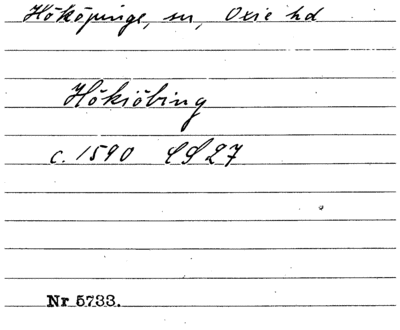 Hököpinge, sn, Oxie hd
Hökiöbing
c. 1590 LS 27
Nr 5733.